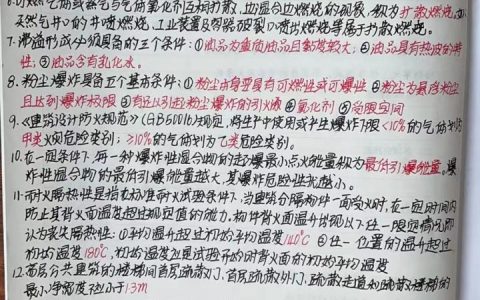 可燃气或蒸气与气体氧化剂互相扩散、边混合边燃烧的现象,称为扩散燃烧,如
天然气井口的井喷燃烧,工业装置及容器破裂口喷出燃烧等属于扩散燃烧。
7.沸溢形成必须具备的三个条件:①油品为重质油品且黏度较大;②油品具有热波的特
性;③油品含有乳化水。
8.粉尘爆炸具备五个基本条件:①粉尘本身要具有可燃性或可爆性 ②粉尘为悬浮粉尘
且达到爆炸极限 ③有足以引起粉尘爆炸的引火源 ④氧化剂 ⑤受限空间
9.《建筑设计防火规范》(GB50016)规定,将生产中使用或产生爆炸下限<10%的气体划为
甲类火灾危险类别;≥10%的气体划为乙类危险类别。
10.在一定条件下,每一种爆炸性混合物的起爆最小点火能量称为最低引爆能量。爆
炸性混合物的最低引爆能量越大,其爆炸危险性就越小。
11.耐火隔热性是指在标准耐火试验条件下,当建筑分隔构件一面受火时,在一定时间内
防止其背火面温度超过规定值的能力。构件背火面温升出现以下任一限定情况即
认为丧失隔热性:①平均温升超过初始平均温度140℃ ②任一位置的温升超过
初始温度180℃,初始温度应是试验开始时背火面的初始平均温度
12.高层公共建筑的楼梯间首层疏散门、首层疏散外门、疏散走道和疏散楼梯的
最小净宽度